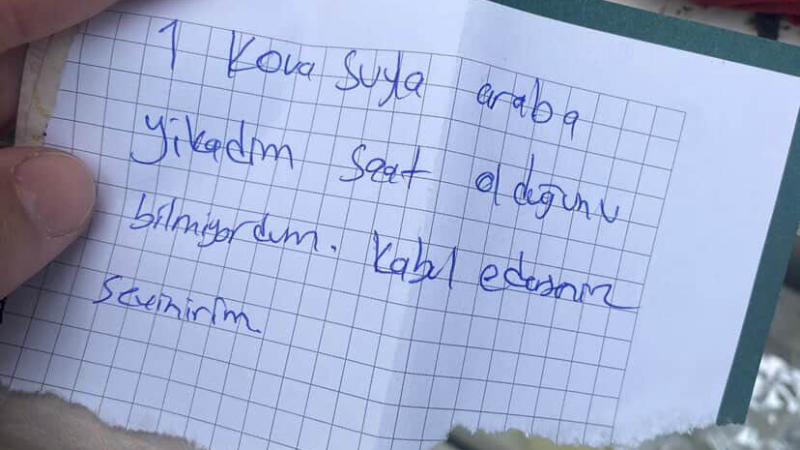 1 Kova suyla araba
yıkadım saat olduğunu
bilmiyordum. Kabul ederseniz
sevinirim